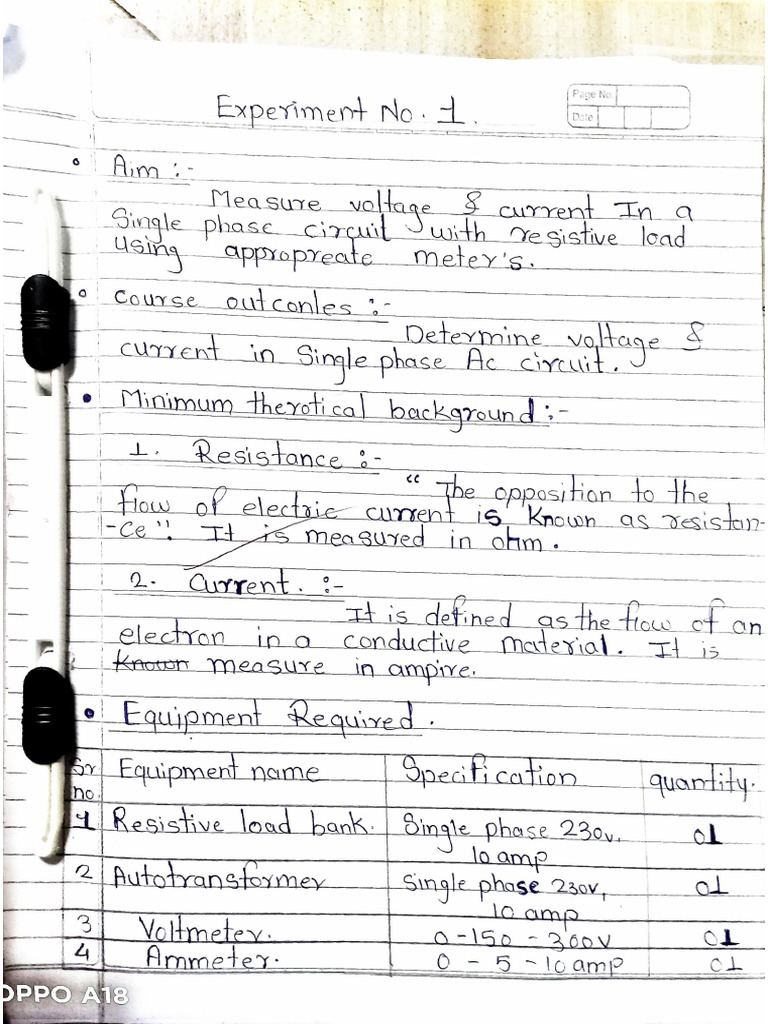 Experiment No. 1.
Page No.
Date
Aim :-
Measure voltage & current In a
Single phase circuit with resistive load
using appropreate meter's.
Course outconles :-
Determine voltage &
current in Single phase Ac circuit.
Minimum therotical background :-
1. Resistance :-
"The opposition to the
flow of electric current is known as resistan-
-ce". It is measured in ohm.
2. Current. :-
It is defined as the flow of an
electron in a conductive material. It is
known measure in ampire.
Equipment Required.
Sr no Equipment name Specification quantity.
1 Resistive load bank. Single phase 230v, 01
10 amp
2 Autotransformer Single phase 230v, 01
10 amp
3 Voltmeter. 0-150-300v 01
4 Ammeter. 0 - 5 - 10 amp 01
OPPO A18